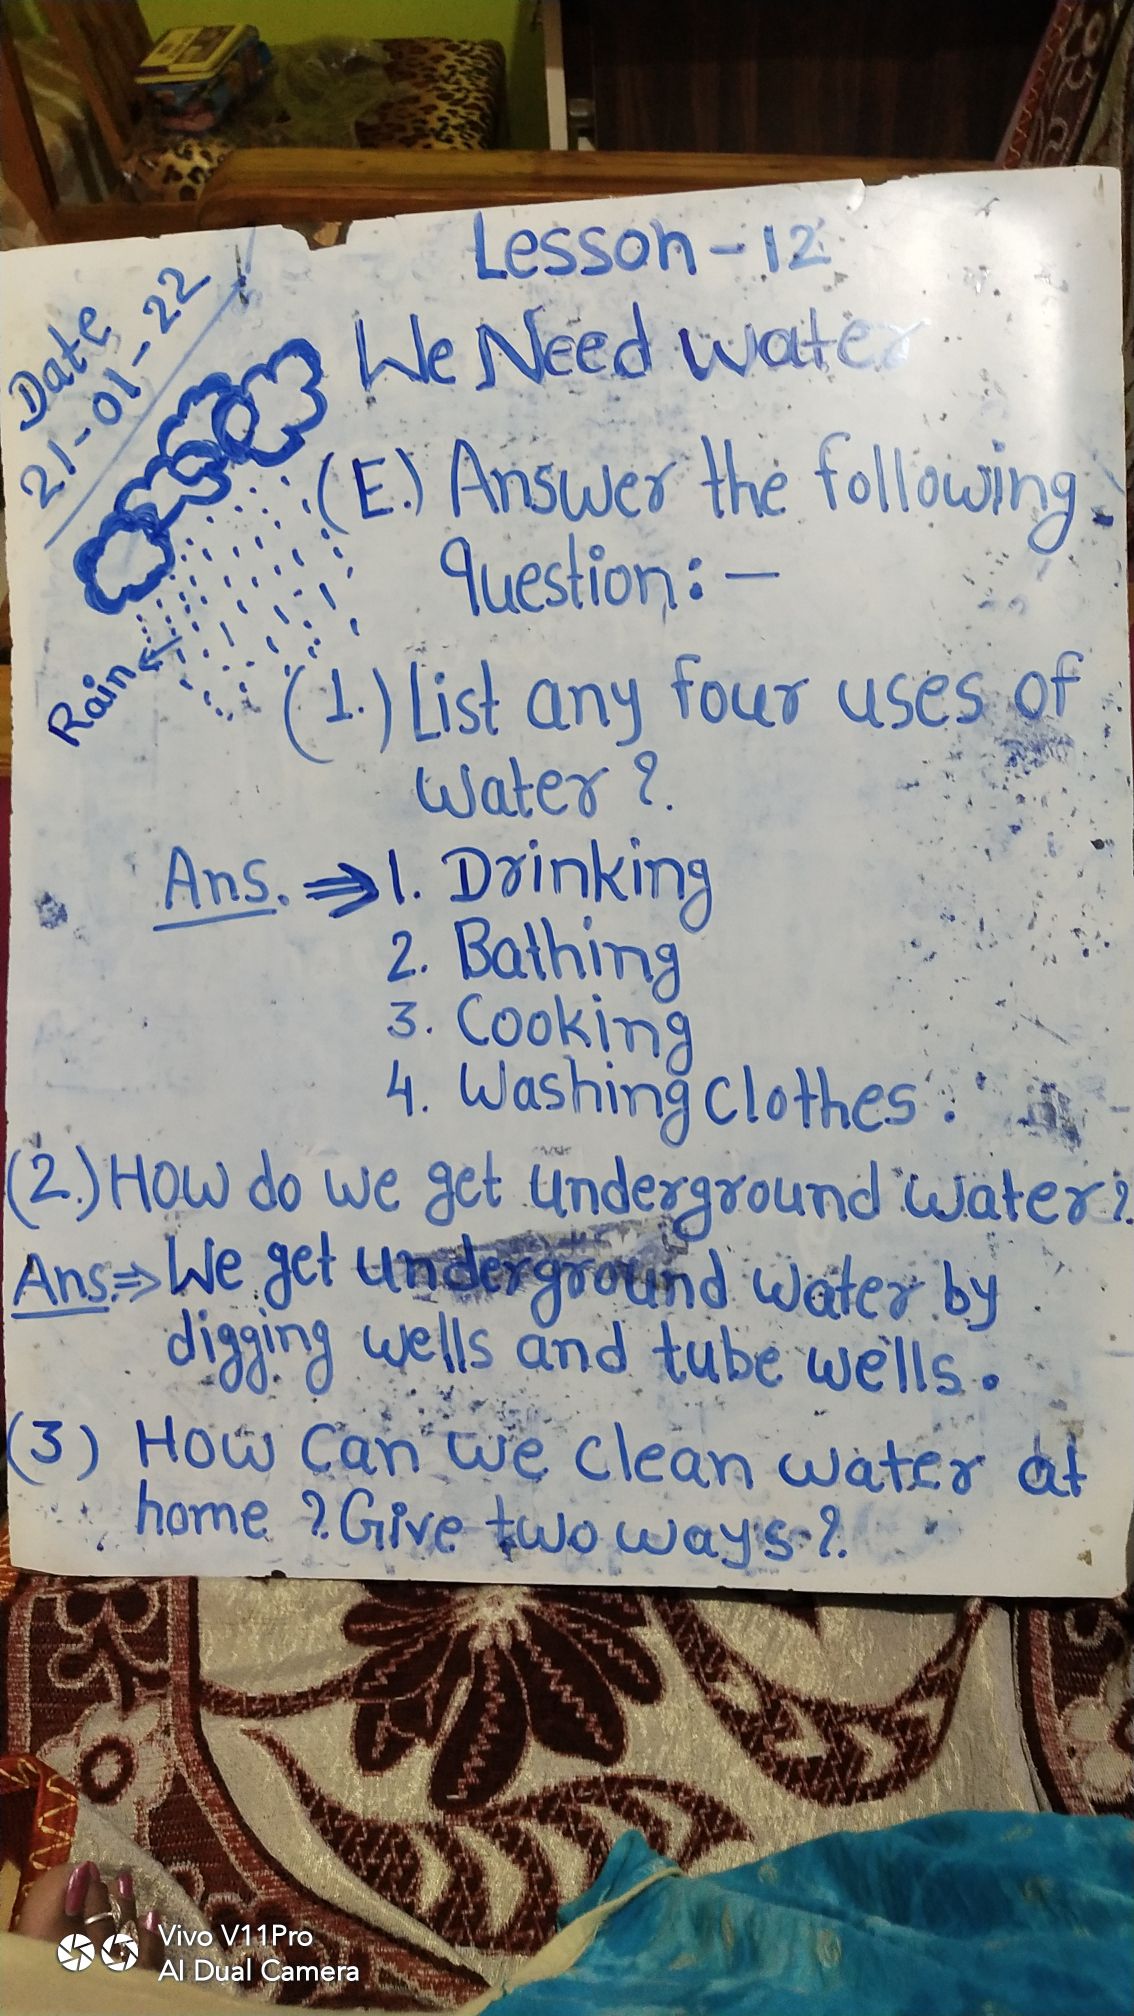 Lesson - 12
Date
21-01-22
We Need water
(E.) Answer the following
question:-
Rain
(1.) List any four uses of
water?
Ans. ⇒ 1. Drinking
2. Bathing
3. Cooking
4. Washing clothes.
(2.) How do we get underground water?
Ans. ⇒ We get underground water by
digging wells and tube wells.
(3) How can we clean water at
home? Give two ways?
Vivo V11Pro
AI Dual Camera